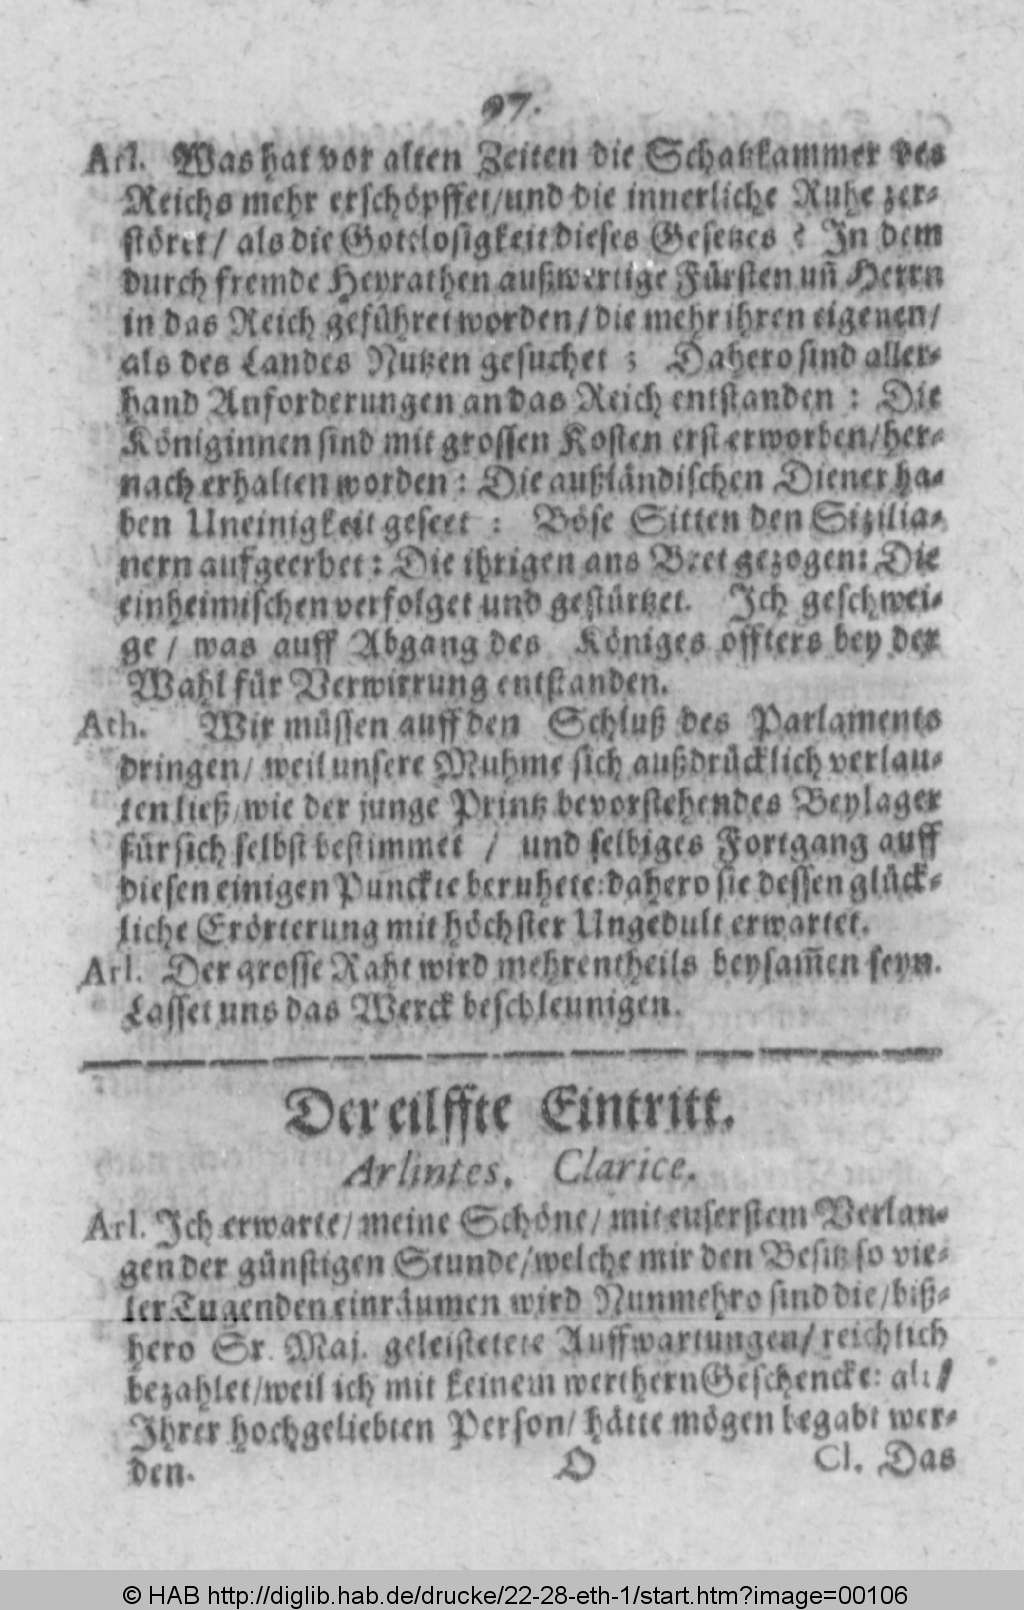 97.
Arl. Was hat vor alten Zeiten die Schatzkammer des
Reichs mehr erschöpffet/und die innerliche Ruhe zer-
störet/ als die Gottlosigkeit dieses Gesetzes ? In dem
durch fremde Heyrathen außwertige Fürsten uñ Herrn
in das Reich geführet worden/die mehr ihren eigenen/
als des Landes Nutzen gesuchet ; Dahero sind aller-
hand Anforderungen an das Reich entstanden : Die
Königinnen sind mit grossen Kosten erst erworben/her-
nach erhalten worden : Die außländischen Diener ha-
ben Uneinigkeit geseet : Böse Sitten den Sizilia-
nern aufgeerbet : Die ihrigen ans Bret gezogen: Die
einheimischen verfolget und gestürtzet. Ich geschwei-
ge / was auff Abgang des Königes öffters bey der
Wahl für Verwirrung entstanden.
Ath. Wir müssen auff den Schluß des Parlaments
dringen/ weil unsere Muhme sich außdrücklich verlau-
ten ließ/wie der junge Printz bevorstehendes Beylager
für sich selbst bestimmet / und selbiges Fortgang auff
diesen einigen Punckte beruhete:dahero sie dessen glück-
liche Erörterung mit höchster Ungedult erwartet.
Arl. Der grosse Raht wird mehrentheils beysam̃en seyn.
Lasset uns das Werck beschleunigen.
Der eilffte Eintritt.
Arlintes. Clarice.
Arl. Ich erwarte/meine Schöne/mit euserstem Verlan-
gen der günstigen Stunde/welche mir den Besitz so vie-
ler Tugenden einräumen wird Nunmehro sind die/biß-
hero Sr. Maj. geleistetete Auffwartungen/reichlich
bezahlet/weil ich mit keinem werthern Geschencke: als/
Ihrer hochgeliebten Person/hätte mögen begabt wer-
den. O Cl. Das
© HAB http://diglib.hab.de/drucke/22-28-eth-1/start.htm?image=00106